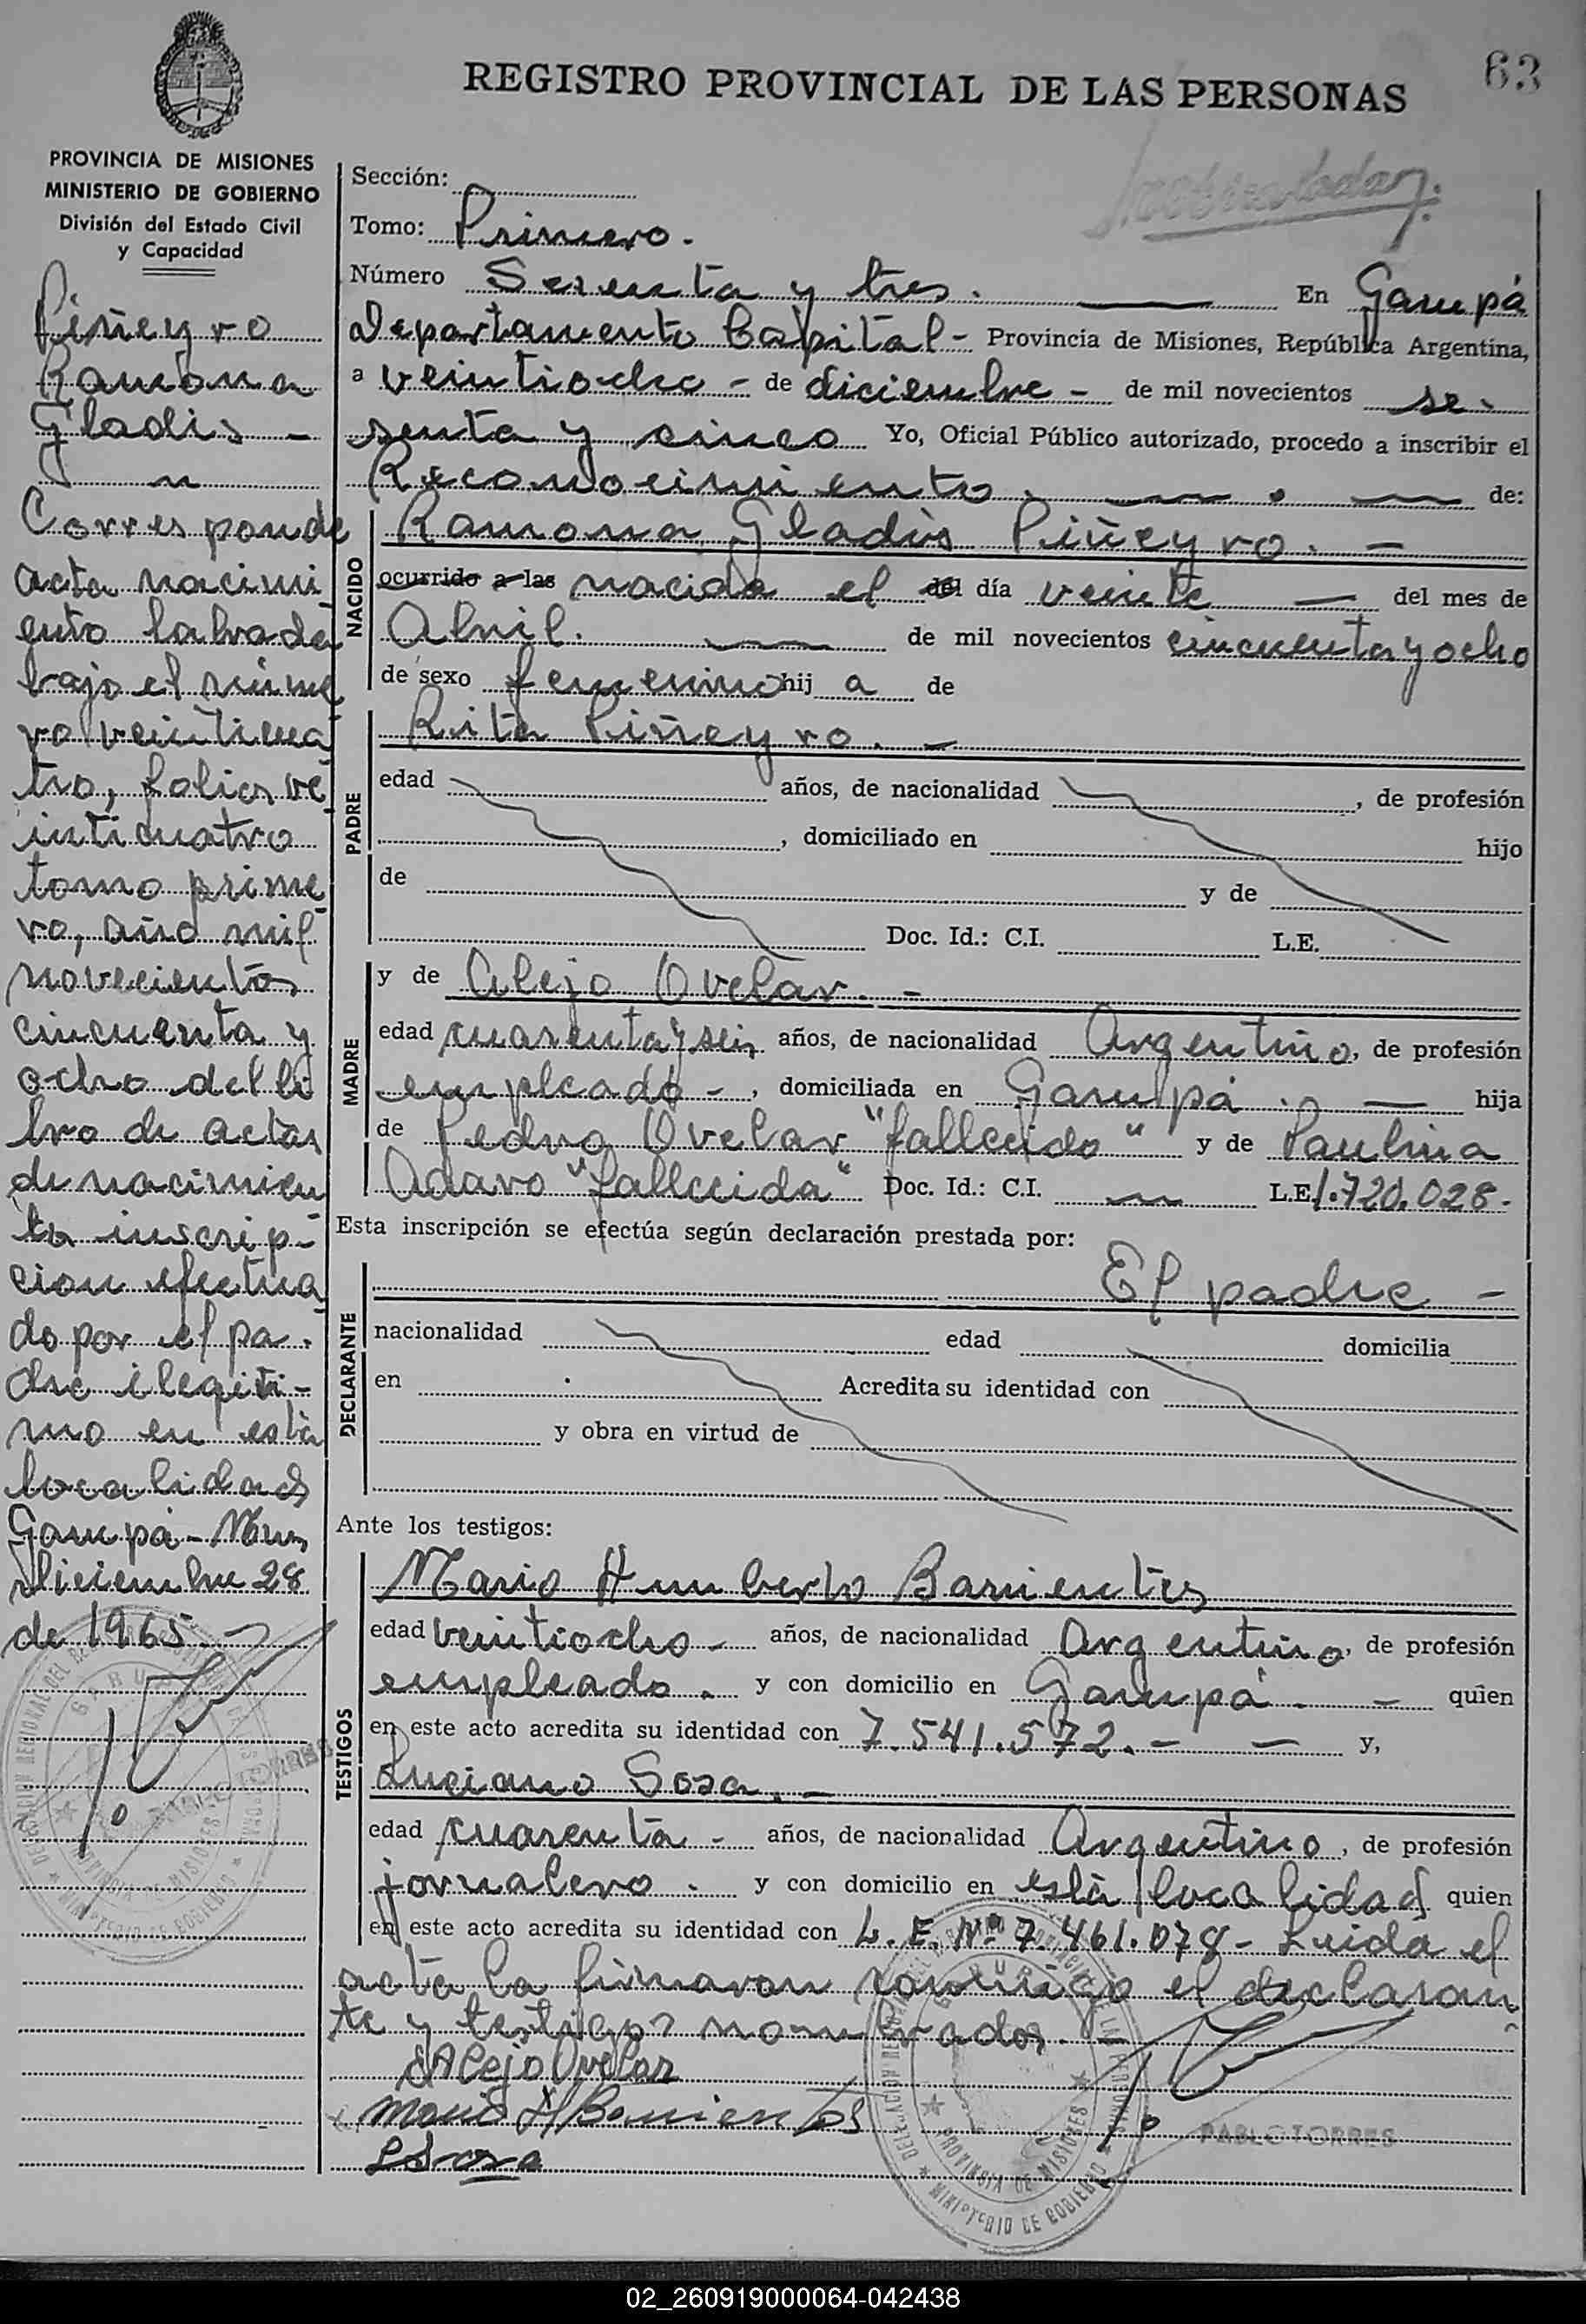 63
REGISTRO PROVINCIAL DE LAS PERSONAS
PROVINCIA DE MISIONES
MINISTERIO DE GOBIERNO
División del Estado Civil
y Capacidad
Piñeyro
Ramona
Gladis -
Corresponde
acta nacimi
ento labrada
bajo el núme
ro veinticua
tro, folios ve
inticuatro
tomo prime
ro, año mil
novecientos
cincuenta y
ocho del li
bro de actas
de nacimien
to inscrip-
cion efectua
do por el pa-
dre ilegiti-
mo en esta
localidad
Garupá - Mnes
diciembre 28
de 1965 -
Sección:
Tomo: Primero.
Número Sesenta y tres. En Garupá
Departamento Capital - Provincia de Misiones, República Argentina,
a veintiocho - de diciembre - de mil novecientos se-
senta y cinco Yo, Oficial Público autorizado, procedo a inscribir el
Reconocimiento. de:
NACIDO
Ramona Gladis Piñeyro. -
ocurrido a las nacida el del día veinte del mes de
Abril. de mil novecientos cincuenta y ocho
de sexo femenino hij a de
PADRE
Rita Piñeyro. -
edad años, de nacionalidad , de profesión
, domiciliado en hijo
de y de
Doc. Id.: C.I. L.E.
MADRE
y de Alejo Ovelar. -
edad cuarenta y seis años, de nacionalidad Argentino, de profesión
empleado -, domiciliada en Garupá. hija
de Pedro Ovelar "fallecido" y de Paulina
Adaro "fallecida" Doc. Id.: C.I. L.E. 1.720.028.
Esta inscripción se efectúa según declaración prestada por:
DECLARANTE
El padre -
nacionalidad edad domicilia
en Acredita su identidad con
y obra en virtud de
Ante los testigos:
TESTIGOS
Mario Humberto Barrientes
edad veintiocho - años, de nacionalidad Argentino, de profesión
empleado. y con domicilio en Garupá. - quien
en este acto acredita su identidad con 7.541.572. - y,
Luciano Sosa. -
edad cuarenta - años, de nacionalidad Argentino, de profesión
jornalero. y con domicilio en esta localidad quien
en este acto acredita su identidad con L.E. Nº 7.461.078 - Leida el
acta la firmaron conmigo el declaran
te y testigos nombrados.
Alejo Ovelar
Mario H Barrientos
LSosa
PABLO TORRES
DELEGACION REGIONAL DEL
GARUPA
PROVINCIA DE MISIONES
MINISTERIO DE GOBIERNO
02_260919000064-042438